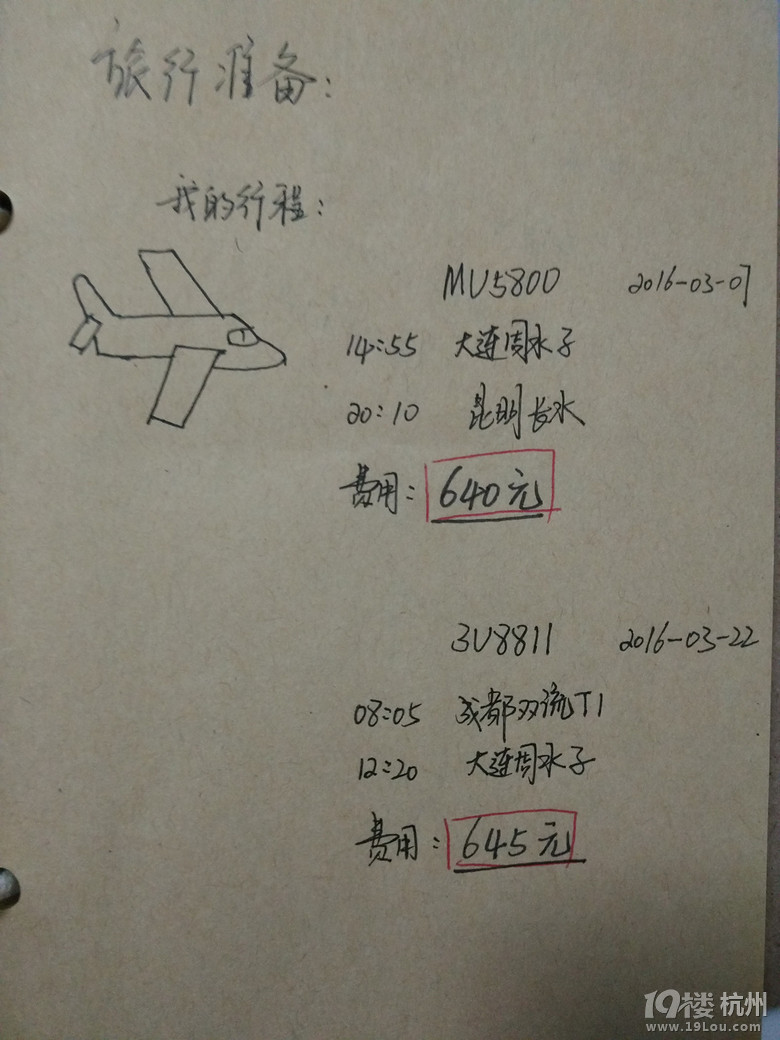 旅行准备：
我的行程：
MU5800 2016-03-07
14:55 大连周水子
20:10 昆明长水
费用：640元
3U8811 2016-03-22
08:05 成都双流T1
12:20 大连周水子
费用：645元
19楼杭州
www.19Lou.com